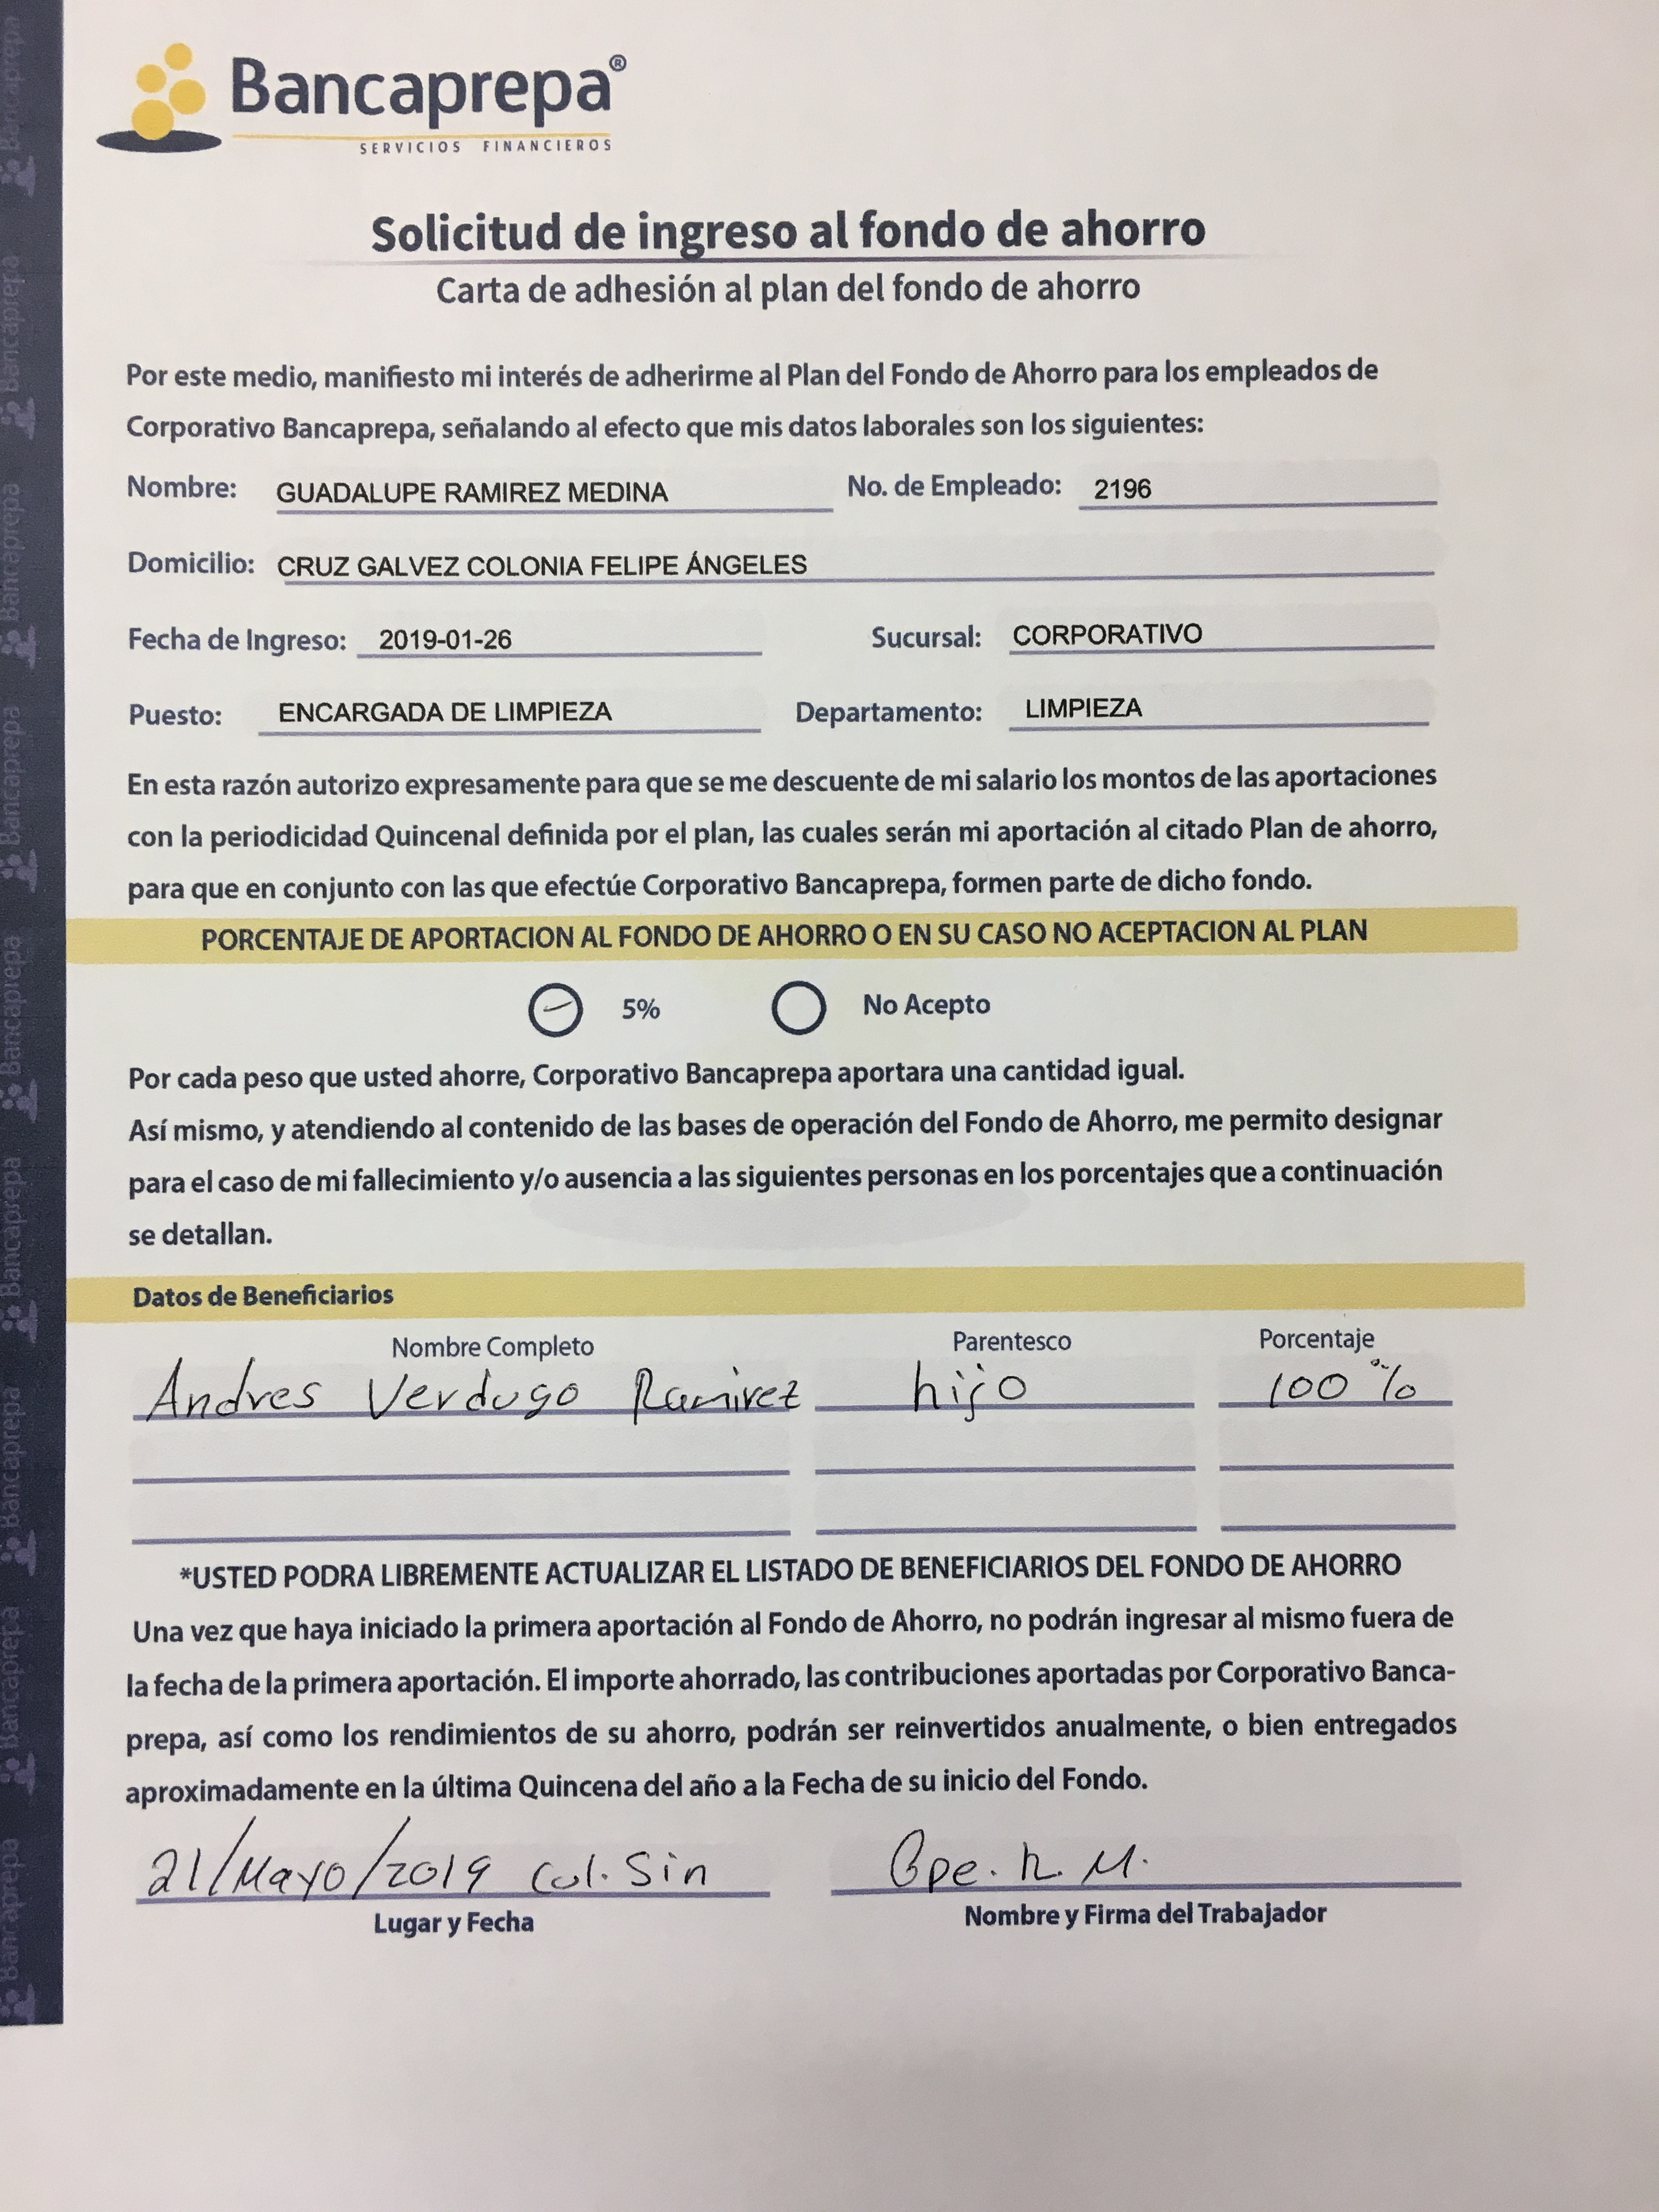 Bancaprepa®
SERVICIOS FINANCIEROS
Solicitud de ingreso al fondo de ahorro
Carta de adhesión al plan del fondo de ahorro
Por este medio, manifiesto mi interés de adherirme al Plan del Fondo de Ahorro para los empleados de
Corporativo Bancaprepa, señalando al efecto que mis datos laborales son los siguientes:
Nombre: GUADALUPE RAMIREZ MEDINA No. de Empleado: 2196
Domicilio: CRUZ GALVEZ COLONIA FELIPE ÁNGELES
Fecha de Ingreso: 2019-01-26 Sucursal: CORPORATIVO
Puesto: ENCARGADA DE LIMPIEZA Departamento: LIMPIEZA
En esta razón autorizo expresamente para que se me descuente de mi salario los montos de las aportaciones
con la periodicidad Quincenal definida por el plan, las cuales serán mi aportación al citado Plan de ahorro,
para que en conjunto con las que efectúe Corporativo Bancaprepa, formen parte de dicho fondo.
PORCENTAJE DE APORTACION AL FONDO DE AHORRO O EN SU CASO NO ACEPTACION AL PLAN
5% No Acepto
Por cada peso que usted ahorre, Corporativo Bancaprepa aportara una cantidad igual.
Así mismo, y atendiendo al contenido de las bases de operación del Fondo de Ahorro, me permito designar
para el caso de mi fallecimiento y/o ausencia a las siguientes personas en los porcentajes que a continuación
se detallan.
Datos de Beneficiarios
Nombre Completo Parentesco Porcentaje
Andres Verdugo Ramirez hijo 100 %
*USTED PODRA LIBREMENTE ACTUALIZAR EL LISTADO DE BENEFICIARIOS DEL FONDO DE AHORRO
Una vez que haya iniciado la primera aportación al Fondo de Ahorro, no podrán ingresar al mismo fuera de
la fecha de la primera aportación. El importe ahorrado, las contribuciones aportadas por Corporativo Banca-
prepa, así como los rendimientos de su ahorro, podrán ser reinvertidos anualmente, o bien entregados
aproximadamente en la última Quincena del año a la Fecha de su inicio del Fondo.
21/Mayo/2019 Cul. Sin Gpe. R. M.
Lugar y Fecha Nombre y Firma del Trabajador
Bancaprepa Bancaprepa Bancaprepa Bancaprepa Bancaprepa Bancaprepa Bancaprepa Bancaprepa Bancaprepa